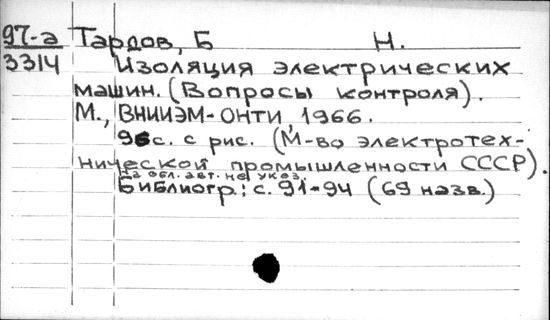 97-а Тардов, Б Н.
3314 Изоляция электрических
машин. (Вопросы контроля).
М., ВНИИЭМ-ОНТИ, 1966.
96с. с рис. (М-во электротех-
нической промышленности СССР).
На обл. авт. не указ.
Библиогр.: с. 91-94 (69 назв.)